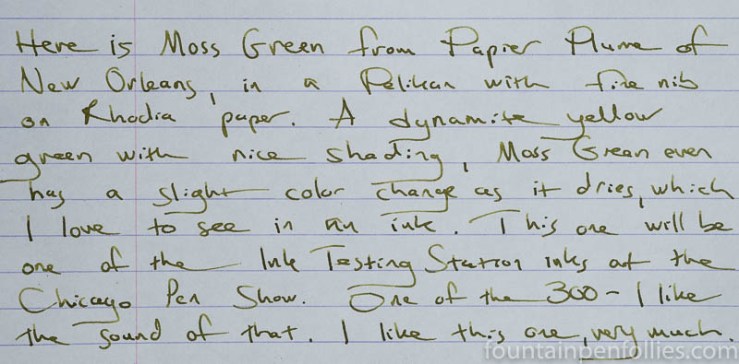 Here is Moss Green from Papier Plume of
New Orleans, in a Pelikan with fine nib
on Rhodia paper. A dynamite yellow
green with nice shading, Moss Green even
has a slight color change as it dries, which
I love to see in an ink. This one will be
one of the Ink Testing Station inks at the
Chicago Pen Show. One of the 300 - I like
the sound of that. I like this one, very much.
fountainpenfollies.com